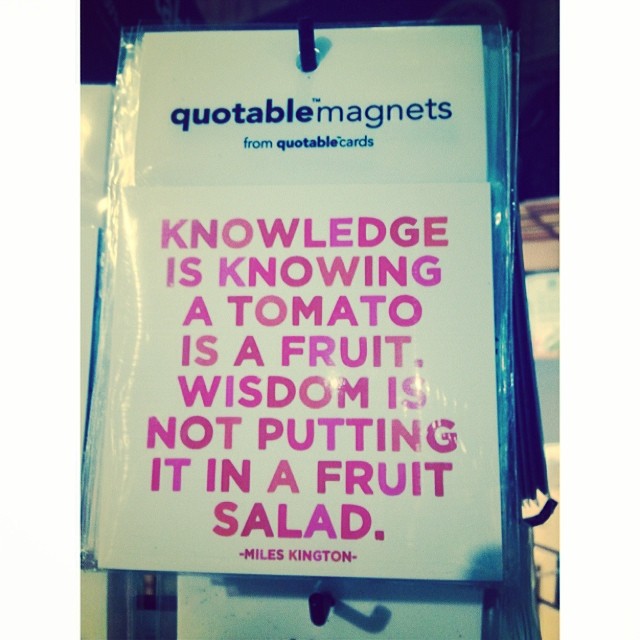 quotable™magnets
from quotable™cards
KNOWLEDGE
IS KNOWING
A TOMATO
IS A FRUIT.
WISDOM IS
NOT PUTTING
IT IN A FRUIT
SALAD.
-MILES KINGTON-